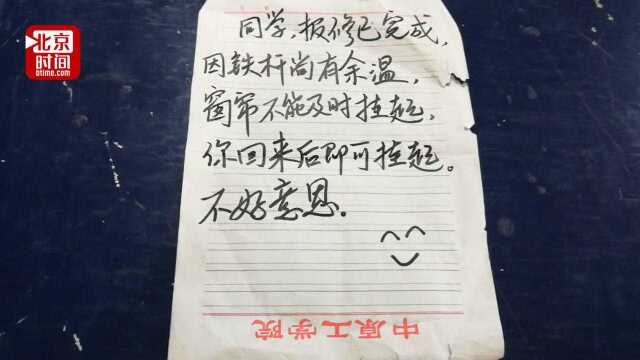 北京
时间
btime.com
同学,报修已完成,
因铁杆尚有余温,
窗帘不能及时挂起,
你回来后即可挂起。
不好意思。
中原工学院